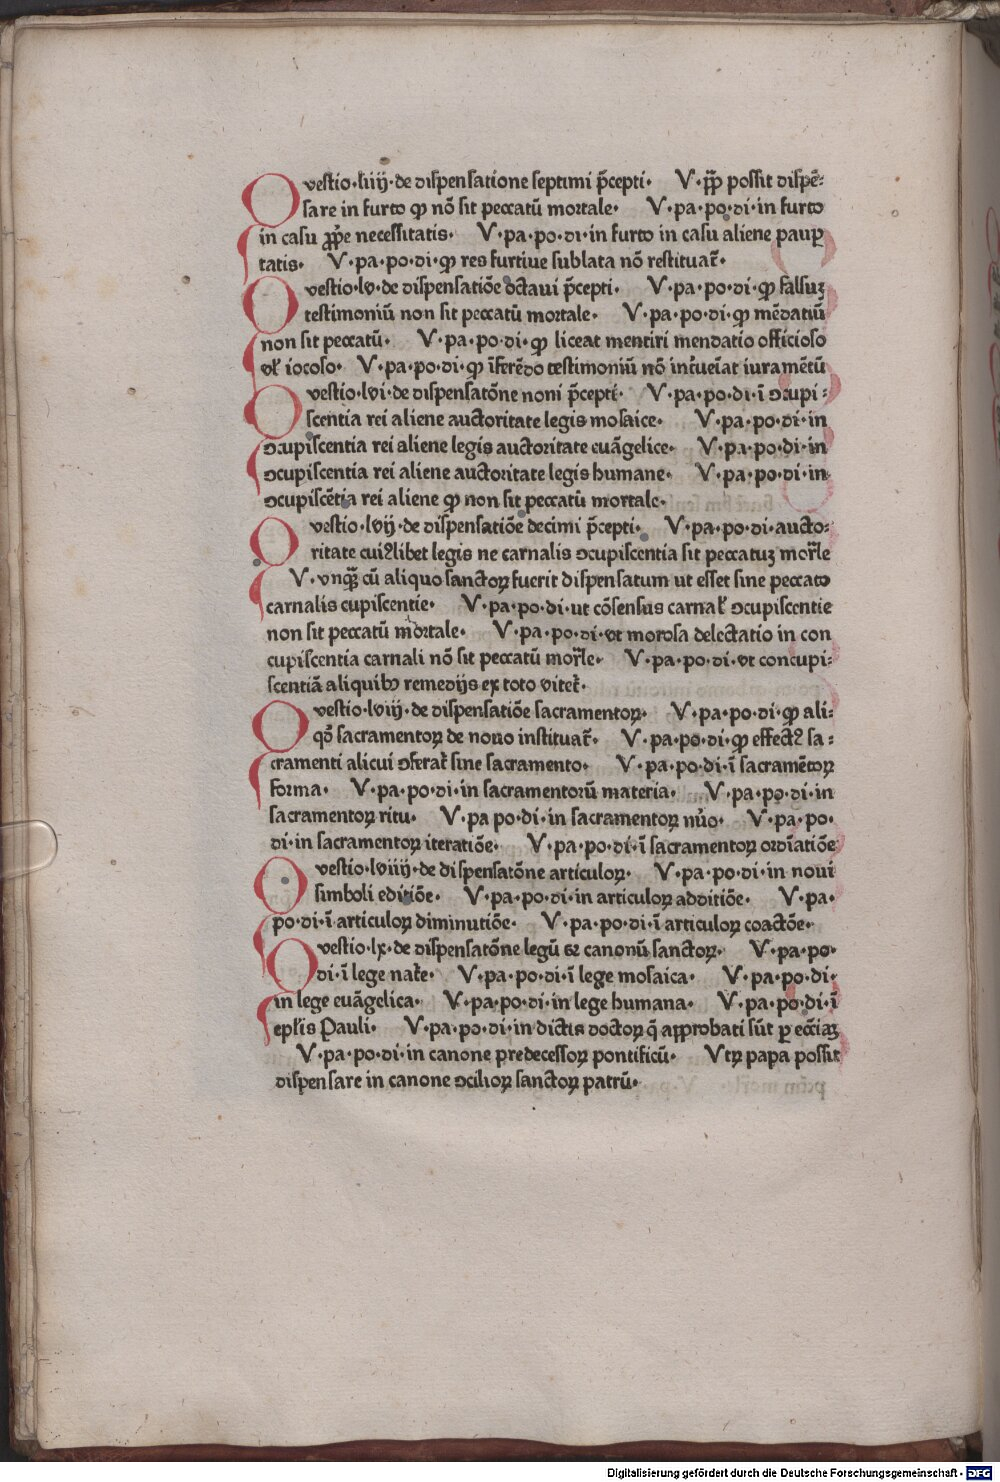 Questio·liiij·de dispensatione septimi p̄cepti· V·pp̄ possit dispē⸗
sare in furto ꝙ nō sit peccatū mortale· V·pa·po·di·in furto
in casu ꝓpe necessitatis· V·pa·po·di·in furto in casu aliene paup
tatis· V·pa·po·di·ꝙ res furtiue sublata nō restituat̄·
Questio·lv·de dispensatiōe octaui p̄cepti· V·pa·po·di·ꝙ falsuʒ
testimoniū non sit peccatū mortale· V·pa·po·di·ꝙ mēdatiū
non sit peccatū· V·pa·po·di·ꝙ liceat mentiri mendatio officioso
vel̄ iocoso· V·pa·po·di·ꝙ īferēdo testimoniū nō int̄ueīat iuramētū
Questio·lvi·de dispensatōne noni p̄cepti· V·pa·po·di·ī ꝯcupi⸗
scentia rei aliene auctoritate legis mosaice· V·pa·po·di·in
ꝯcupiscentia rei aliene legis auctoritate euāgelice· V·pa·po·di·in
ꝯcupiscentia rei aliene auctoritate legis humane· V·pa·po·di·in
ꝯcupiscētia rei aliene ꝙ non sit peccatū mortale·
Questio·lvij·de dispensatiōe decimi p̄cepti· V·pa·po·di·aucto⸗
ritate cuiꝰlibet legis ne carnalis ꝯcupiscentia sit peccatuʒ mor̄le
V·vnqȝ̄ cū aliquo sanctoꝝ fuerit dispensatum ut esset sine peccato
carnalis cupiscentie· V·pa·po·di·ut cōsensus carnal̄ ꝯcupiscentie
non sit peccatū mortale· V·pa·po·di·vt morosa delectatio in con
cupiscentia carnali nō sit peccatū mor̄le· V·pa·po·di·vt concupi⸗
scentiā aliquibꝰ remedijs ex toto vitet̄·
Questio·lviij·de dispensatiōe sacramentoꝝ· V·pa·po·di·ꝙ ali⸗
qō sacramentoꝝ de nouo instituat̄· V·pa·po·di·ꝙ effectꝰ sa⸗
cramenti alicui ꝯferat̄ sine sacramento· V·pa·po·di·ī sacramētoꝝ
forma· V·pa·po·di·in sacramentorū materia· V·pa·po·di·in
sacramentoꝝ ritu· V·pa po·di·in sacramentoꝝ nūo· V·pa·po·
di·in sacramentoꝝ iteratiōe· V·pa·po·di·ī sacramentoꝝ ordīatiōe
Questio·lviiij·de dispensatōne articuloꝝ· V·pa·po·di·in noui
simboli editiōe· V·pa·po·di·in articuloꝝ additiōe· V·pa·
po·di·ī articuloꝝ diminutiōe· V·pa·po·di·ī articuloꝝ coactōe·
Questio·lx·de dispensatōne legū & canonū sanctoꝝ· V·pa·po·
di·ī lege nat̄e· V·pa·po·di·ī lege mosaica· V·pa·po·di·
in lege euāgelica· V·pa·po·di·in lege humana· V·pa·po·di·ī
epl̄is Pauli· V·pa·po·di·in dictis doctoꝝ q̄ approbati sūt ꝑ eccīaʒ
V·pa·po·di·in canone predecessoꝝ pontificū· Vtꝝ papa possit
dispensare in canone ꝯcilioꝝ sanctoꝝ patrū·
Digitalisierung gefördert durch die Deutsche Forschungsgemeinschaft · DFG